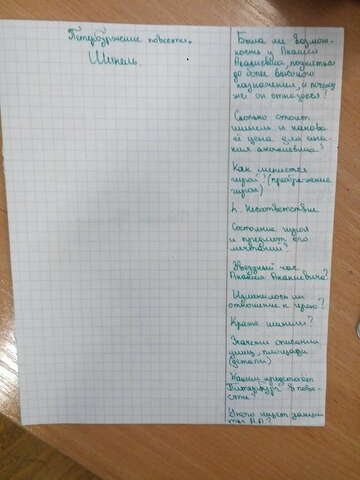 Петербургские повести.
Шинель.
Была ли возмож-
ность у Акакия
Акакиевича, подняться
до более высокого
назначения, и почему
же он отказался?
Сколько стоит
шинель и какова
её цена для Ака-
кия Акакиевича?
Как меняется
герой? (преображение
героя)
4. Несоответствие
Состояние героя
и предмет его
мечтаний?
Звездный час
Акакия Акакиевича?
Изменилось ли
отношение к нему?
Кража шинели?
Значение описания
улиц, площади
(детали)
Каким предстаёт
Петербург в повес-
сти?